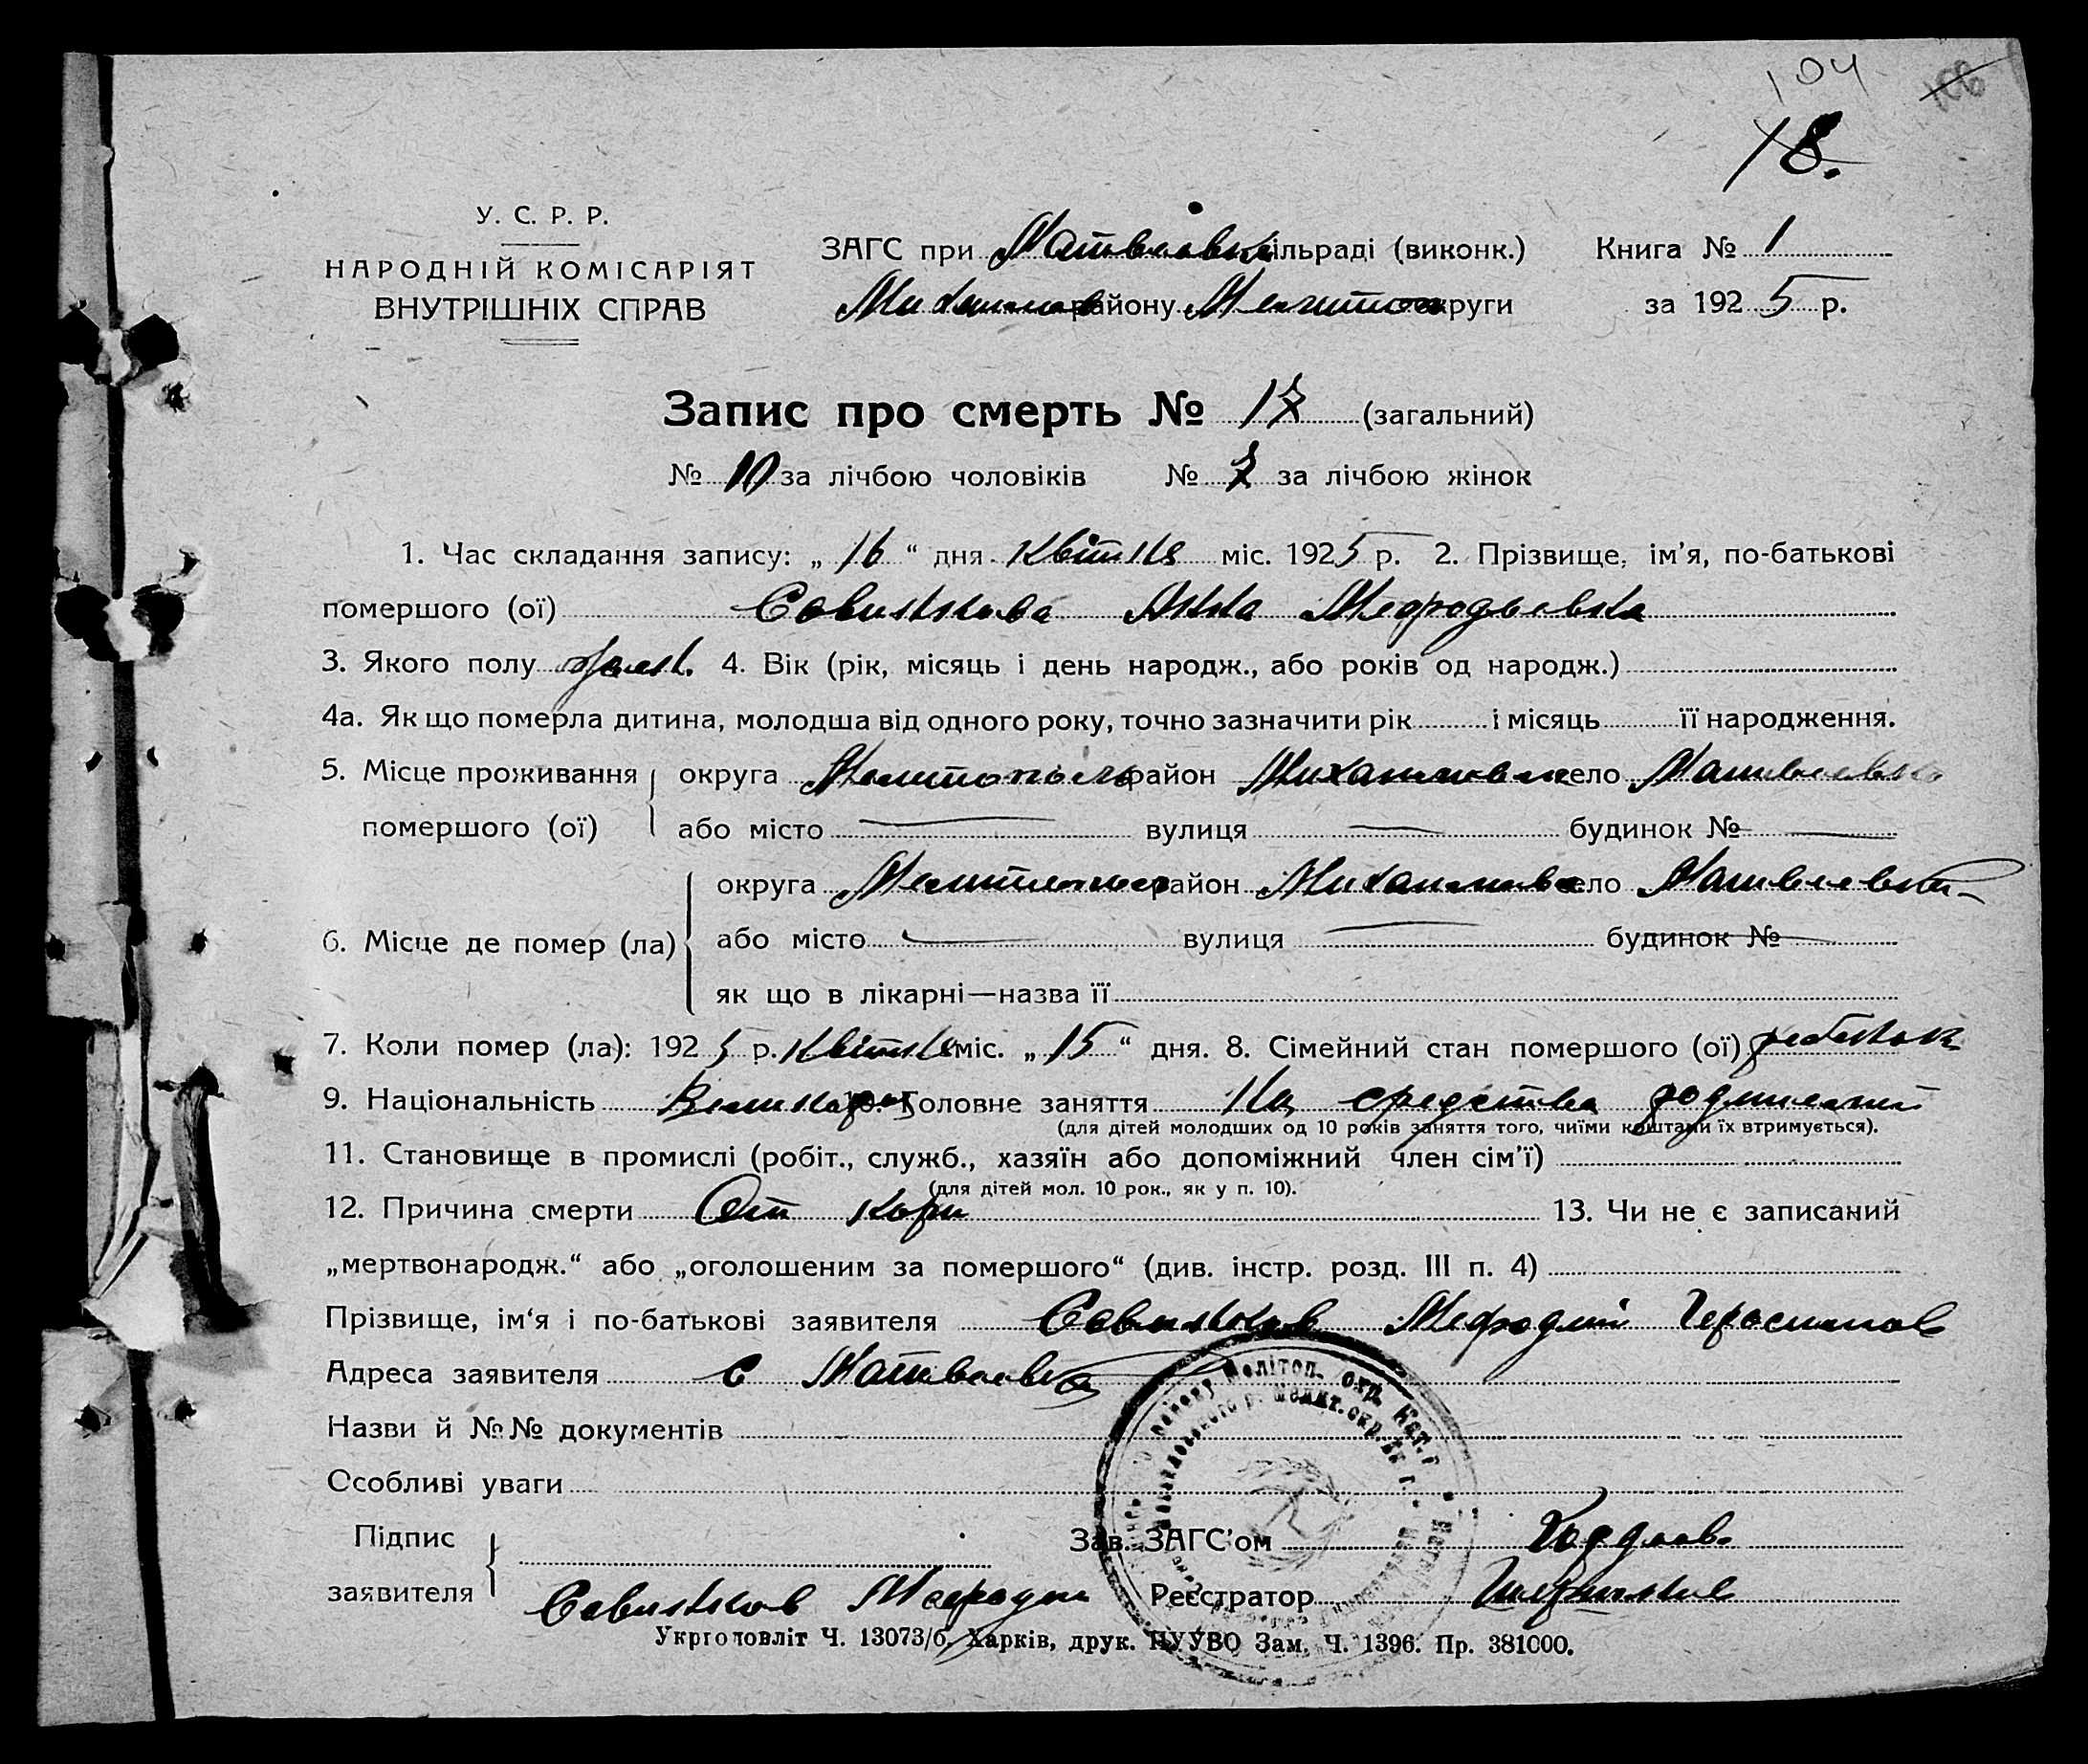 104
18.
У. С. Р. Р.
НАРОДНІЙ КОМІСАРІЯТ
ВНУТРІШНІХ СПРАВ
ЗАГС при Матвеевк сільраді (виконк.) Книга № 1
Михайлов району Мелитоп округи за 1925 р.
Запис про смерть № (загальний)
№ 10 за лічбою чоловіків № за лічбою жінок
1. Час складання запису: „ 16 “ дня Квітня міс. 1925 р. 2. Прізвище, ім’я, по-батькові
помершого (ої) Савинкова Анна Мефодьевна
3. Якого полу женс. 4. Вік (рік, місяць і день народж., або років од народж.)
4а. Як що померла дитина, молодша від одного року, точно зазначити рік і місяць її народження.
5. Місце проживання округа Мелитополь район Михайловк село Матвеевка
помершого (ої) або місто — вулиця — будинок № —
округа Мелитопол район Михайлов село Матвеевка
6. Місце де помер (ла) або місто — вулиця — будинок № —
як що в лікарні—назва її
7. Коли помер (ла): 1925 р. Квітня міс. „ 15 “ дня. 8. Сімейний стан помершого (ої) ребенок
9. Національність Великорос 10. Головне заняття На средства родителей
(для дітей молодших од 10 років заняття того, чиїми коштами їх втримується).
11. Становище в промислі (робіт., служб., хазяїн або допоміжний член сім’ї)
(для дітей мол. 10 рок., як у п. 10).
12. Причина смерти От кори 13. Чи не є записаний
„мертвонародж.“ або „оголошеним за помершого“ (див. інстр. розд. III п. 4)
Прізвище, ім‘я і по-батькові заявителя Савинков Мефодий Герасимов
Адреса заявителя с Матвеевка
Назви й №№ документів
Особливі уваги
Підпис Зав. ЗАГС’ом
заявителя Савинков Мефодий Реєстратор
Укрголовліт Ч. 13073/б. Харків, друк. НУУВО Зам. Ч. 1396. Пр. 381000.
району Мелітоп. окр.